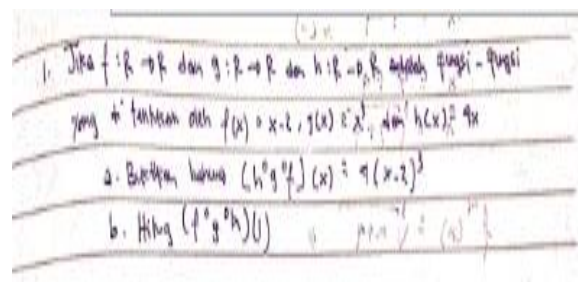 1. Jika f : R → R dan g : R → R dan h : R → R adalah fungsi - fungsi
yang di tentukan oleh f(x) = x-2, g(x) = x³, dan h(x) = 9x
a. Buktikan bahwa (h°g°f)(x) = 9(x-2)³
b. Hitung (f°g°h)(1)